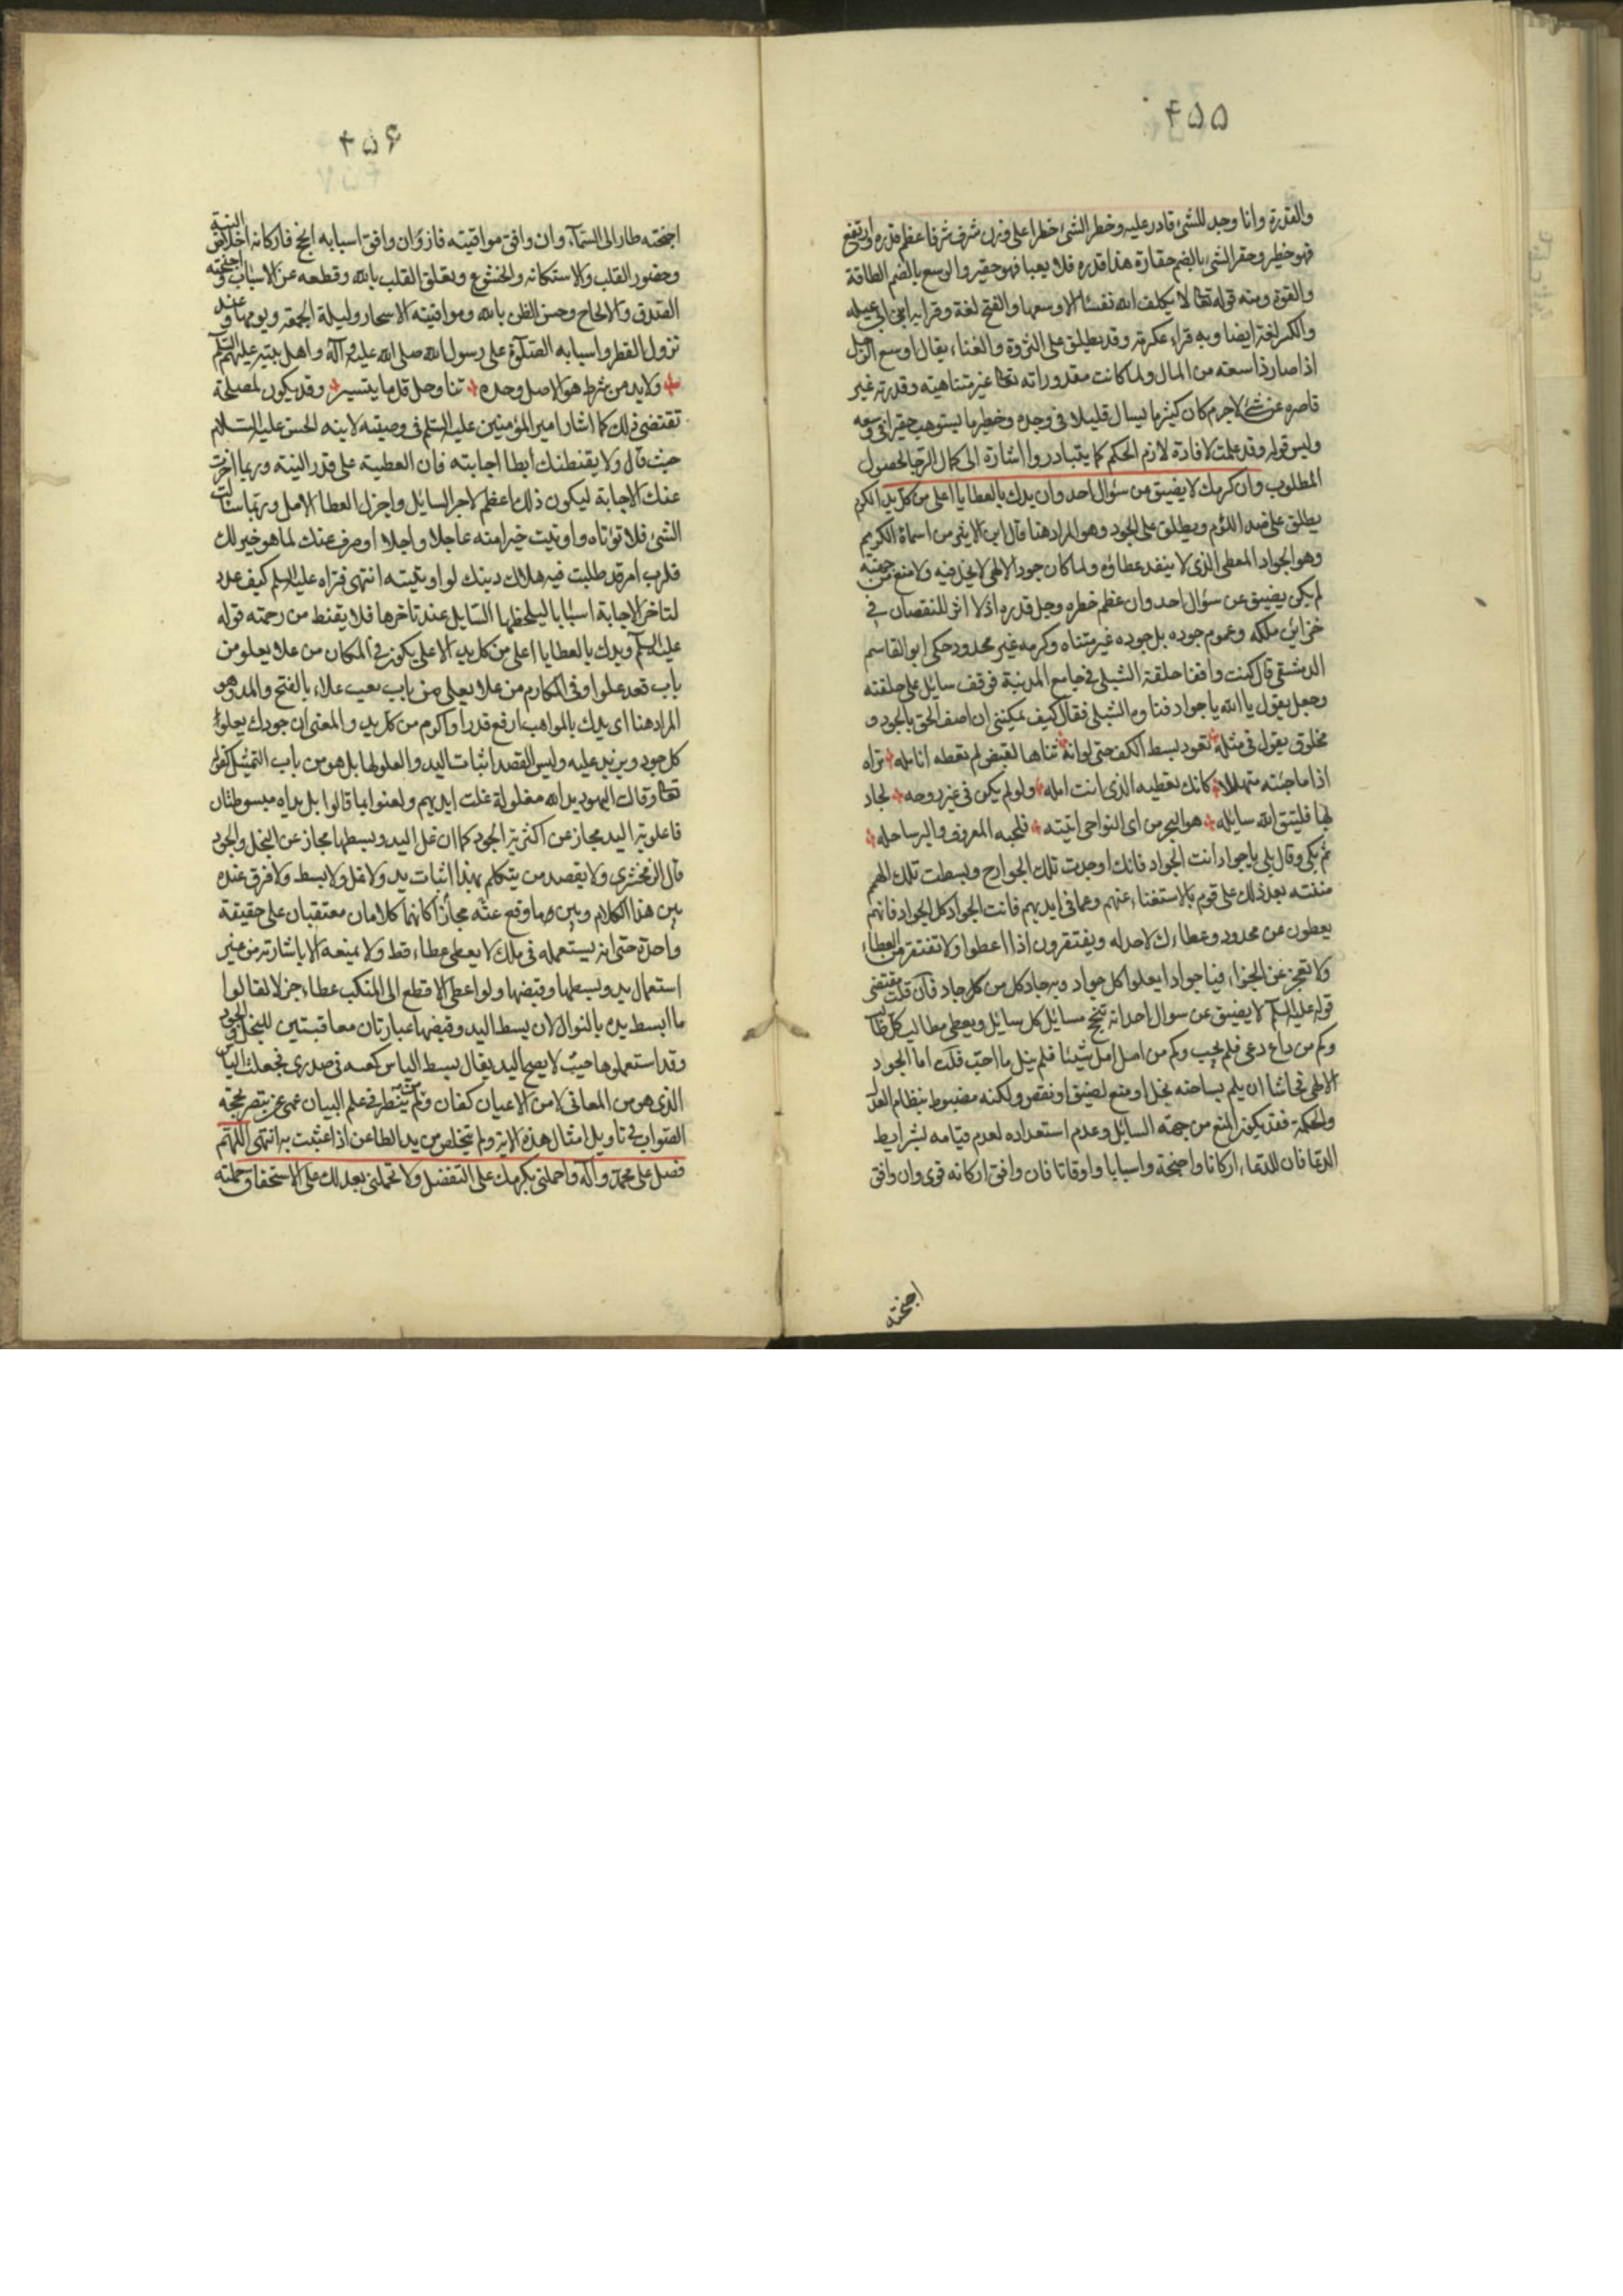 ٤٥٥
والقدرة وانا وجد للشئ قادر عليه وخطر الشئ خطرا على وزن شرف شرفا عظم قدره وارتفع
فهو خطير وحقر الشئ بالضم حقارة هذا قدره فلا يعبا فهو حقير والوسع بالضم الطاقة
والقوة ومنه قوله تعا لا يكلف الله نفسا الا وسعها والفتح لغة وقرا به ابن ابي عبيله
والكسر لغة ايضا وبه قراء عكرمة وقد يطلق على الثروة والغناء يقال اوسع الرجل
اذا صار ذا سعة من المال ولما كانت مقدوراته تعا غير متناهية وقدرته غير
قاصره عن شئ لاجرم كان كثير ما يسال قليلا في وجده وخطير ما يستوهب حقيرا في وسعه
وليس قوله وقد علمت لافادة لازم الحكم كما يتبادر وا اشارة الى كمال الرجا لحصول
المطلوب وان كرمك لا يضيق من سؤال احد وان يدك بالعطايا اعلى من كل يد الكرم
يطلق على ضد اللؤم ويطلق على الجود وهو المراد هنا قال ابن الاثير من اسماء الكريم
وهو الجواد المعطي الذي لا ينفد عطاؤه ولما كان جود الالهي لا بخل فيه ولا منع من جهته
لم يكن يضيق عن سؤال احد وان عظم خطره وجل قدره اذ لا اثر للنقصان في
خزاين ملكه وعموم جوده بل جوده غير متناه وكرمه غير محدود حكي ابو القاسم
الدمشقي قال كنت واقفا حلقة الشبلي في جامع المدينة فوقف سايل على حلقته
وجعل يقول يا الله يا جواد فتاوه الشبلي فقال كيف يمكنني ان اصف الحق بالجود و
مخلوق يقول في مثله تعود بسط الكف حتى لوانه ثناها لقبض لم تعطه انامله تراه
اذا ما جئته متهللا كانك تعطيه الذي انت امله ولو لم يكن في غير روحه لجاد
بها فليتق الله سايله هو البحر من اي النواحي اتيته فلجبه المعروف والبر ساحله
ثم بكى وقال بلى يا جواد انت الجواد فانك اوجدت تلك الجوارح وبسطت تلك الهمم
مننته بعد ذلك على قوم بالاستغناء عنهم وعما في ايديهم فانت الجواد كل الجواد فانهم
يعطون عن محدود وعطاءك لا حد له ويفتقرون اذا اعطوا ولا تفتقر من العطاء
ولا تعجز عن الجزاء فيا جوادا يعلوا كل جواد وبه جاد كل من كل جاد فان قلت مقتضى
قوله عليه السلم لا يضيق عن سوال احد انه تنجح مسايل كل سايل ويعطي مطالب كل طالب
وكم من داع دعى فلم يجب وكم من امل امل شيئا فلم ينل ما احب قلت اما الجود
الالهي فحاشا ان يلم بساحته بخل او منع لضيق او نقص ولكنه مضبوط بنظام العدل
والحكمة فقد يكون المنع من جهة السايل وعدم استعداده لعدم قيامه بشرايط
الدعا فان للدعاء اركانا واجنحة واسبابا واوقاتا فان وافق اركانه قوى وان وافق
اجنحته
٤٥۶
اجنحته طار الى السماء وان وافق مواقيته فاز وان وافق اسبابه انجح فاركانه اخلاص النية
وحضور القلب والاستكانه والخشوع وتعلق القلب بالله وقطعه عن الاسباب واجنحته
الصدق والالحاح وحسن الظن بالله ومواقيته الاسحار وليلة الجمعة ويومها وعند
نزول القطر واسبابه الصلوة على رسول الله صلى الله عليه وآله واهل بيته عليهم السلم
ولابد من شرط هو الاصل وحده تناول قل ما يتيسر وقد يكون لمصلحة
تقتضي ذلك كما اشار امير المؤمنين عليه السلم في وصيته لابنه الحسن عليه السلام
حيث قال ولا يقنطنك ابطا اجابته فان العطية على قدر النية وربما اخرت
عنك الاجابة ليكون ذلك اعظم لاجر السايل واجزل العطا الامل وربما سالت
الشئ فلا تؤتاه واوتيت خيرا منه عاجلا واجلا او صرف عنك لما هو خير لك
فلرب امر قد طلبت فيه هلاك دينك لو اوتيته انتهى فتراه عليه السلم كيف عدد
لتاخر الاجابة اسبابا ليلحظها السايل عند تاخرها فلا يقنط من رحمته قوله
عليه السلم ويدك بالعطايا اعلى من كل يد الاعلى يكون في المكان من علا يعلو من
باب قعد علوا وفي المكارم من علا يعلى من باب تعب علاء بالفتح والمد وهو
المراد هنا اي يدك بالمواهب ارفع قدرا واكرم من كل يد والمعنى ان جودك يعلو
كل جود ويزيد عليه وليس القصد اثبات اليد والعلو لها بل هو من باب التمثيل كقوله
تعا وقالت اليهود يد الله مغلولة غلت ايديهم ولعنوا بما قالوا بل يداه مبسوطتان
فاعلوية اليد مجاز عن اكثرية الجود كما ان غل اليد وبسطها مجاز عن البخل والجود
قال الزمخشري ولا يقصد من يتكلم بهذا اثبات يد ولا غل ولا بسط ولا فرق عنده
بين هذا الكلام وبين ما وقع عنه مجازا كانهما كلامان معتقبان على حقيقة
واحدة حتى انه يستعمله في ملك لا يعطي عطاء قط ولا يمنعه الا باشارته من غير
استعمال يد وبسطها وقبضها ولو اعطى الاقطع الى المنكب عطاء جزلا لقالوا
ما ابسط يده بالنوال لان بسط اليد وقبضها عبارتان معاقبتين للبخل والجود
وقد استعملوها حيث لا يصح اليد يقال بسط الياس كفيه في صدري فجعلت الياس
الذي هو من المعاني لا من الاعيان كفان ولم ينظر في علم البيان عمى عن تبصر محجة
الصواب في تاويل امثال هذه الاية ولم يتخلص من يد الطاعن اذا عبثت به انتهى اللهم
فصل على محمد وآله واحملني بكرمك على التفضل ولا تحملني بعدلك على الاستحقاق حملته